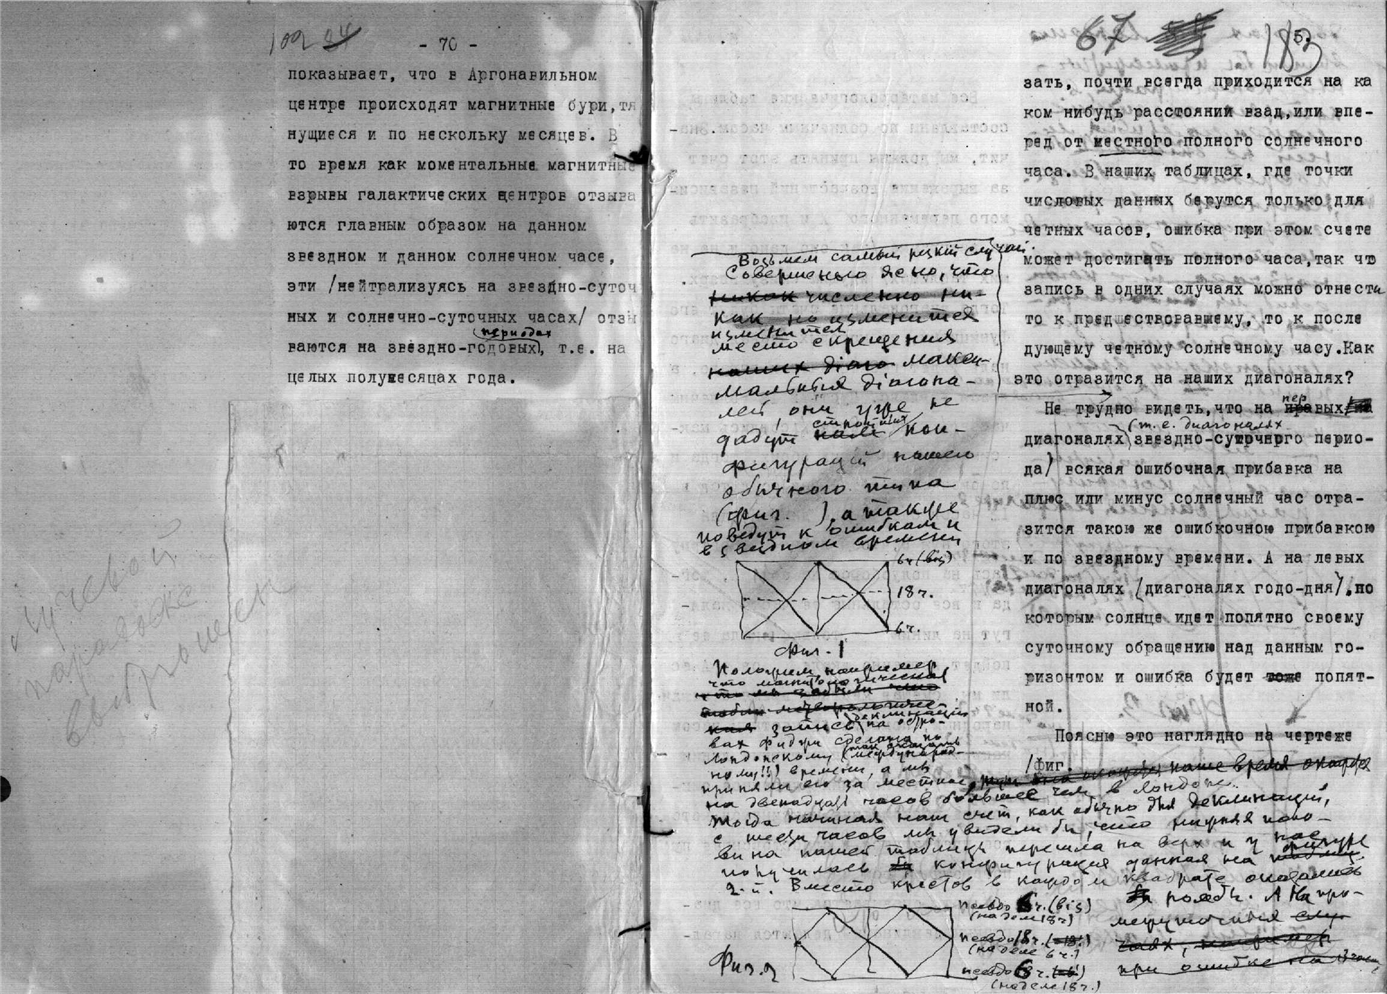 109
- 70 -
показывает, что в Аргонавильном
центре происходят магнитные бури,тя
нущиеся и по нескольку месяцев. В
то время как моментальные магнитные
взрывы галактических центров отзыва
ются главным образом на данном
звездном и данном солнечном часе,
эти /нейтрализуясь на звездно-суточ
ных и солнечно-суточных часах/ отзы
периодах
ваются на звездно-годовых, т.е. на
целых полумесяцах года.
67
183
зать, почти всегда приходится на ка
ком нибудь расстояний взад,или впе-
ред от местного полного солнечного
часа. В наших таблицах, где точки
числовых данных берутся только для
четных часов, ошибка при этом счете
может достигать полного часа,так что
запись в одних случаях можно отнести
то к предшествовавшему, то к после
дующему четному солнечному часу.Как
это отразится на наших диагоналях?
Не трудно видеть,что на правых
(т.е. диагоналях
диагоналях звездно-суточного перио-
да) всякая ошибочная прибавка на
плюс или минус солнечный час отра-
зится такою же ошибкочною прибавкою
и по звездному времени. А на левых
диагоналях /диагоналях годо-дня/,по
которым солнце идет попятно своему
суточному обращению над данным го-
ризонтом и ошибка будет тоже попят-
ной.
Поясню это наглядно на чертеже
/фиг.
Возьмем самый резкий случай.
Совершенно ясно, что
численно ни-
как не изменится
изменител
место скрещения
наших диаго макси-
мальныя диагона-
лей, они уже не
дадут кон-
фигураций нашего
обычного типа
(фиг. ), а также
поведут к ошибкам и
в звездном времени
6ч (bis)
18ч.
6ч.
Фиг. 1
Положим например
что магнитологическая
запись деклинаций
на остро-
вах Фиджи сделана по
Лондонскому (так
междунарад-
ному!!) времени, а мы
приняли его за местное,
наше время
на двенадцать часов больше чем в Лондоне.
Тогда начиная наш счет, как обычно для деклинаций,
с шести часов мы увидели бы, что нижняя поло-
вина нашей таблицы перешла на верх и у нас
получилась конфигурация данная на фигуре
2-й. Вместо крестов в каждом квадрате оказались
ромбы. А на про-
межуточных
при ошибке на
псевдо 6ч. (bis)
(на деле 18ч)
псевдо 18ч.
(на деле 6ч.)
псевдо 6ч.
(на деле 18ч.)
Фиг. 2